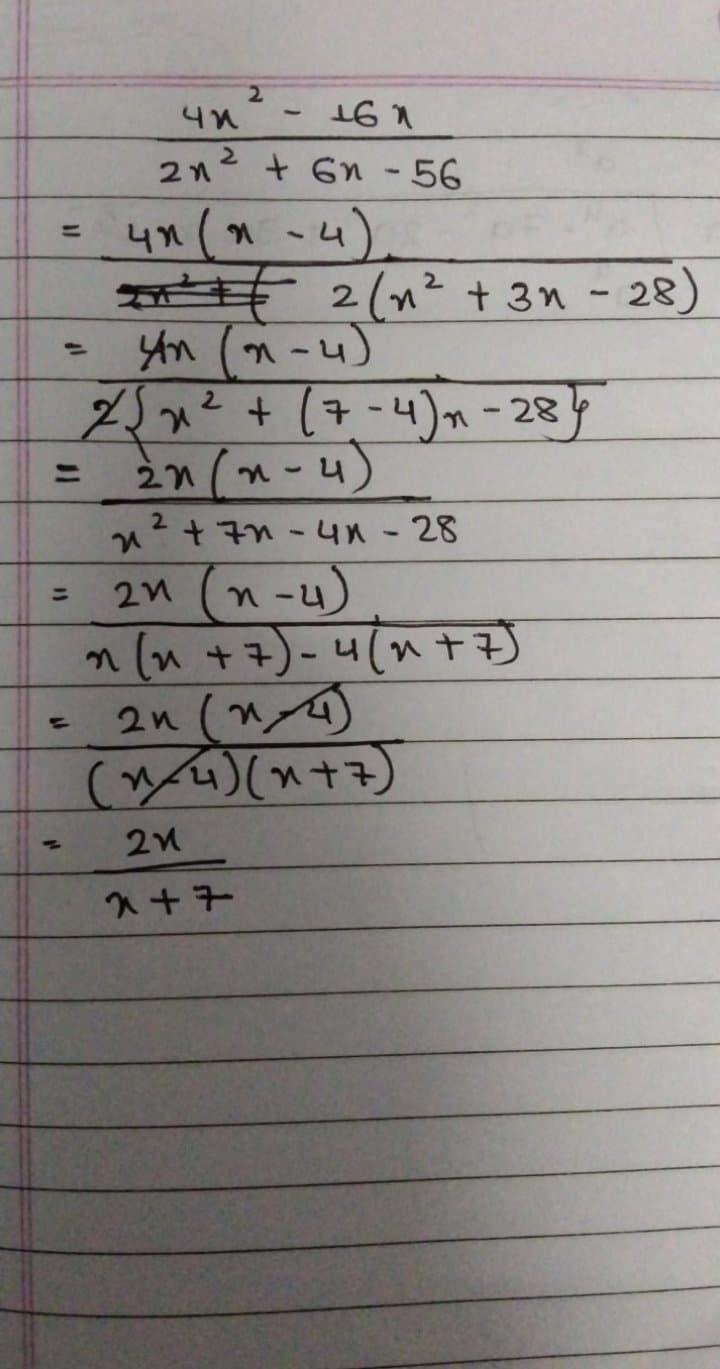 4x² - 16x
2x² + 6x - 56
= 4x(x - 4)
2(x² + 3x - 28)
= 4x(x - 4)
2{x² + (7 - 4)x - 28}
= 2x(x - 4)
x² + 7x - 4x - 28
= 2x(x - 4)
x(x + 7) - 4(x + 7)
= 2x(x - 4)
(x - 4)(x + 7)
= 2x
x + 7